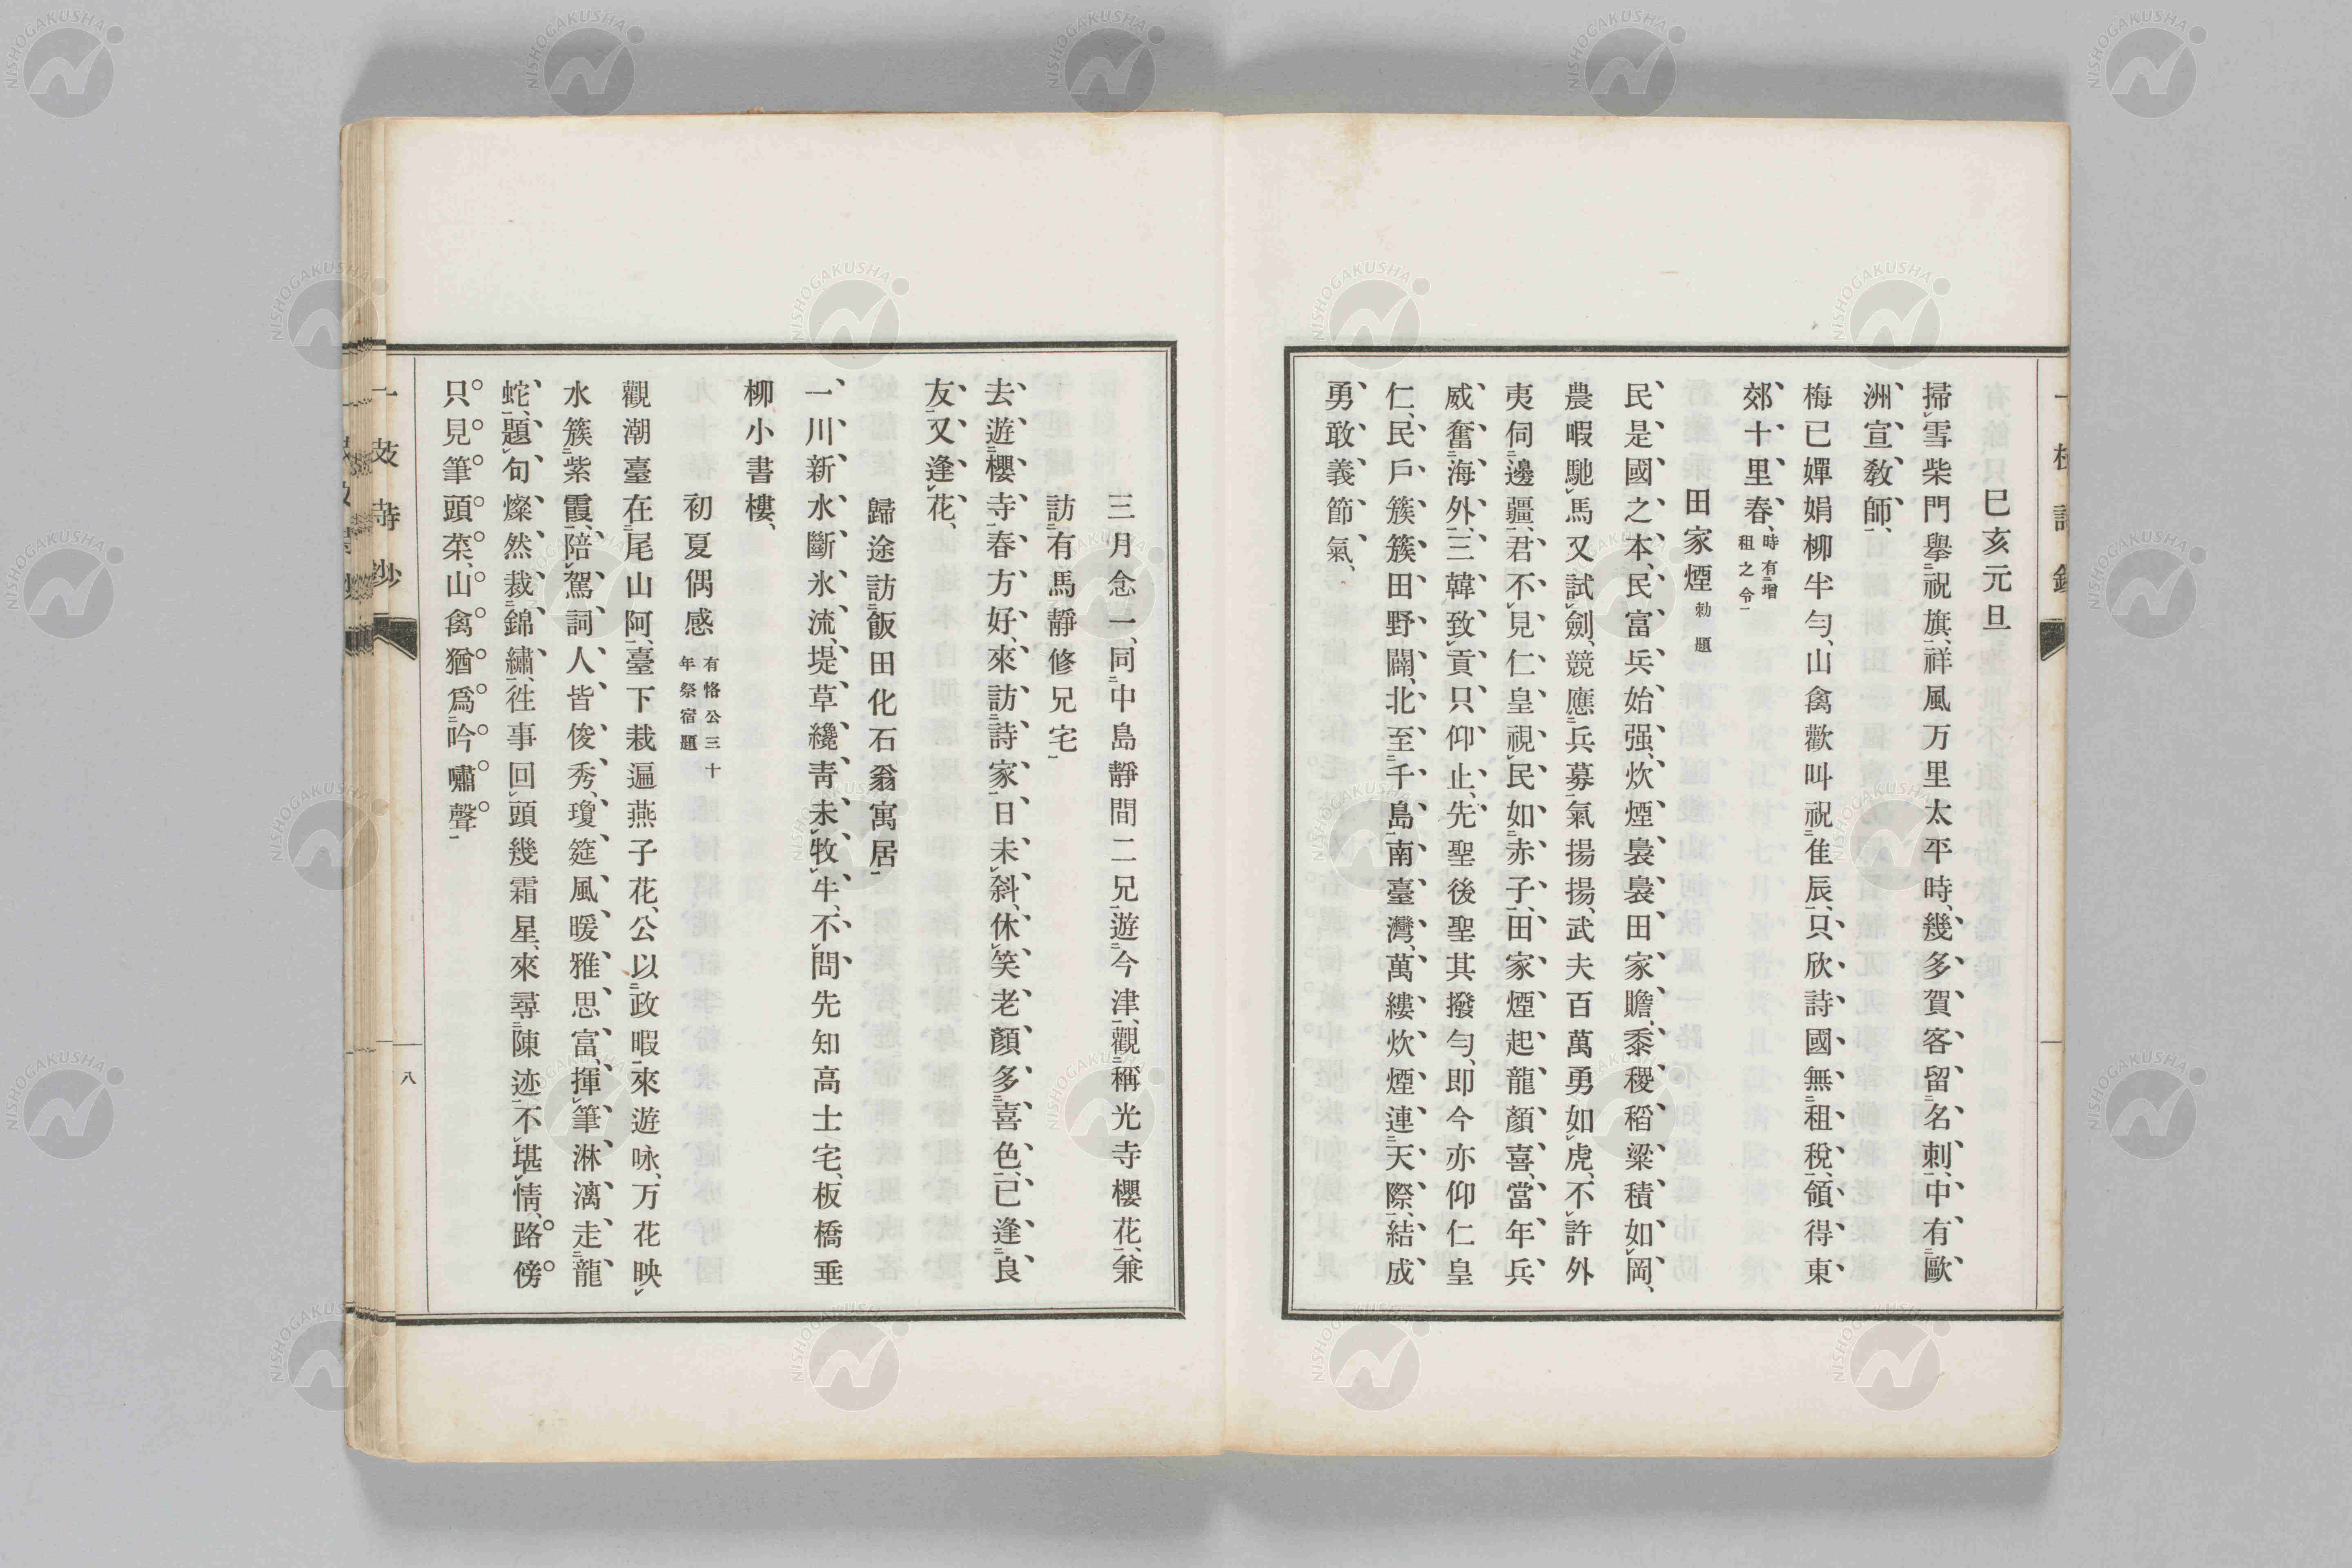 巳亥元旦
掃雪柴門擧祝旗、祥風万里太平時、幾多賀客留名刺、中有歐
洲宣敎師、
梅已嬋娟柳半勻、山禽歡叫祝隹辰、只欣詩國無租稅、領得東
郊十里春、時有增租之令
田家煙 勅題
民是國之本、民富兵始强、炊煙裊裊田家贍、黍稷稻粱積如岡、
農暇馳馬又試劍、競應兵募氣揚揚、武夫百萬勇如虎、不許外
夷伺邊疆、君不見仁皇視民如赤子、田家煙起龍顏喜、當年兵
威奮海外、三韓致貢只仰止、先聖後聖其撥勻、即今亦仰仁皇
仁、民戶簇簇田野闢、北至千島南臺灣、萬縷炊煙連天際、結成
勇敢義節氣、
三月念一、同中島靜間二兄遊今津、觀稱光寺櫻花、兼
訪有馬靜修兄宅
去遊櫻寺春方好、來訪詩家日未斜、休笑老顏多喜色、已逢良
友又逢花、
歸途訪飯田化石翁寓居
一川新水斷氷流、堤草纔靑未牧牛、不問先知高士宅、板橋垂
柳小書樓、
初夏偶感 有恪公三十年祭宿題
觀潮臺在尾山阿、臺下栽遍燕子花、公以政暇來遊咏、万花映
水簇紫霞、陪駕詞人皆俊秀、瓊筵風暖雅思富、揮筆淋漓走龍
蛇、題句燦然裁錦繡、徃事回頭幾霜星、來尋陳迹不堪情、路傍
只見筆頭菜、山禽猶爲吟嘯聲
八
NISHOGAKUSHA